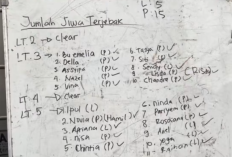 L: 5
P: 15
Jumlah Jiwa Terjebak
LT 2 → Clear
LT. 3 → 1. Bu emelia (P) 6. Tasya (P)
2. Della (P) 7. Siti (P)
3. Assyifa (P) 8. Sandy (L)
4. Nazel (P) 9. Linda (P) (CRISA)
5. Vina (P) 10. Chandra (P)
LT 4 → Clear
LT 5 → 1. Dilpul (L) 6. Dinda (P)
2. Novia (P) (Hamil) 7. Pariyem (P)
3. Apriana (L) 8. Rosdiana (P)
4. Nisa (P) 9. Adel (L)
5. Chintia (P) 10.
11. Raihan (L)